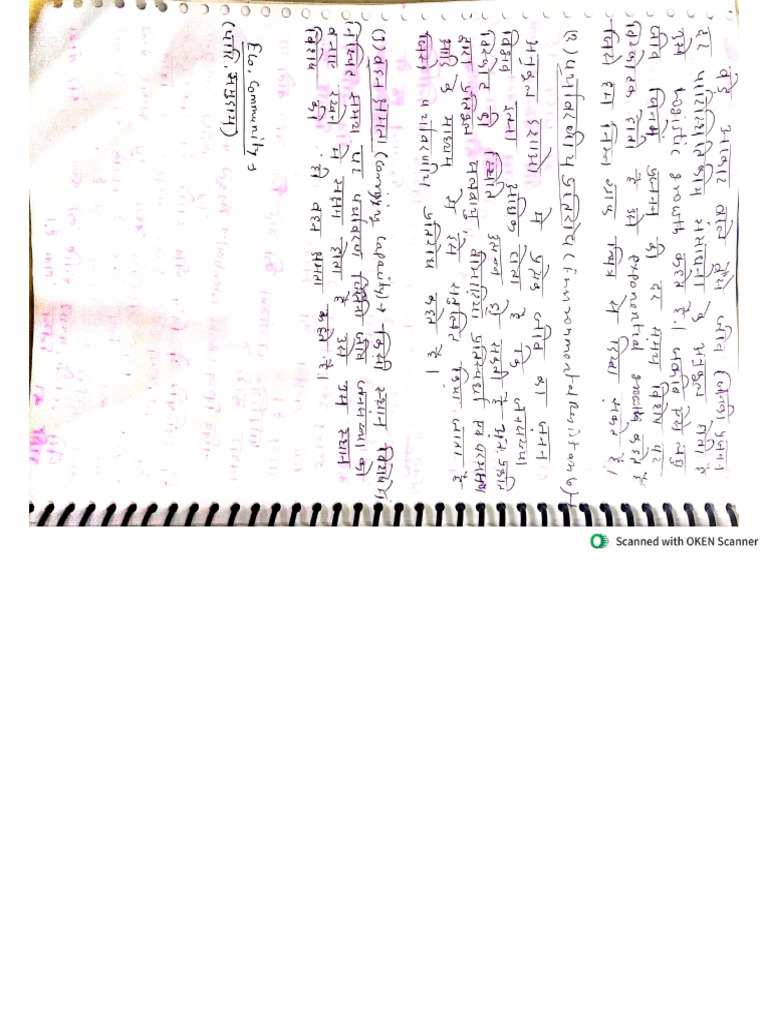 बड़े आकार वाले ऐसे जीव जिनकी प्रजनन
दर पारिस्थितिकीय संसाधनो के अनुकूल होती है
इसे Logistic growth कहते है। जबकि ऐसे लघु
जीव जिनमे प्रजनन की दर समय विशेष पर
विस्फोटक होती है इसे exponential growth कहते है
जिसे हम निम्न ग्राफ चित्र से दिखा सकते हैं।
(ए) पर्यावरणीय प्रतिरोध (Environmental Resistance)→
अनुकूल दशाओ में प्रत्येक जीव का जनन
विभव इतना अधिक होता है कि जनसंख्या
विस्फोट की स्थिति उत्पन्न हो सकती है अतः प्रकृति
द्वारा प्रतिकूल जलवायु, बीमारियां प्रतिस्पर्धा एवं परभक्षण
आदि के माध्यम से इसे संतुलित किया जाता है
जिसे पर्यावरणीय प्रतिरोध कहते हैं।
(9) वहन क्षमता (Carrying Capacity)→ किसी स्थान विशेष में
निश्चित समय पर पर्यावरण जितनी जीव जनसंख्या को
बनाए रखने में सक्षम होता है उसे उस स्थान
विशेष की वहन क्षमता कहते है।
Eco. Community→
(पारि. समुदाय)
Scanned with OKEN Scanner